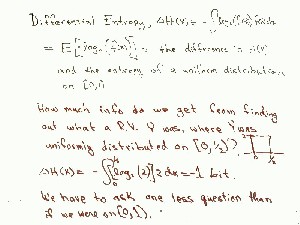 Differential Entropy, ΔH(X) = -∫ log₂(f(x)) f(x) dx
= E[log₂(1/f(x))] = the difference in H(X)
and the entropy of a uniform distribution
on [0,1]
How much info do we get from finding
out what a R.V. Y was, where Y was
uniformly distributed on [0,½)?
0 ½
ΔH(X) = -∫ log₂(2) 2 dx = -1 bit.
We have to ask one less question than
if we were on [0,1).